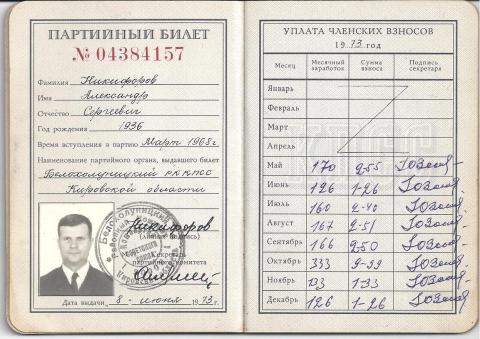 ПАРТИЙНЫЙ БИЛЕТ
№ 04384157
Фамилия Никифоров
Имя Александр
Отчество Сергеевич
Год рождения 1936
Время вступления в партию Март 1968 г.
Наименование партийного органа, выдавшего билет
Белохолуницкий РК КПСС
Кировской области
Никифоров
(личная подпись)
Секретарь
партийного комитета
Дата выдачи 8 - июня 1973 г.
УПЛАТА ЧЛЕНСКИХ ВЗНОСОВ
1973 год
Месяц Месячный заработок Сумма взноса Подпись секретаря
Январь
Февраль
Март
Апрель
КПСС
Май 170 2-55
Июнь 126 1-26
Июль 160 2-40
Август 167 2-51
Сентябрь 166 2-50
Октябрь 333 9-99
Ноябрь 133 1-33
Декабрь 126 1-26